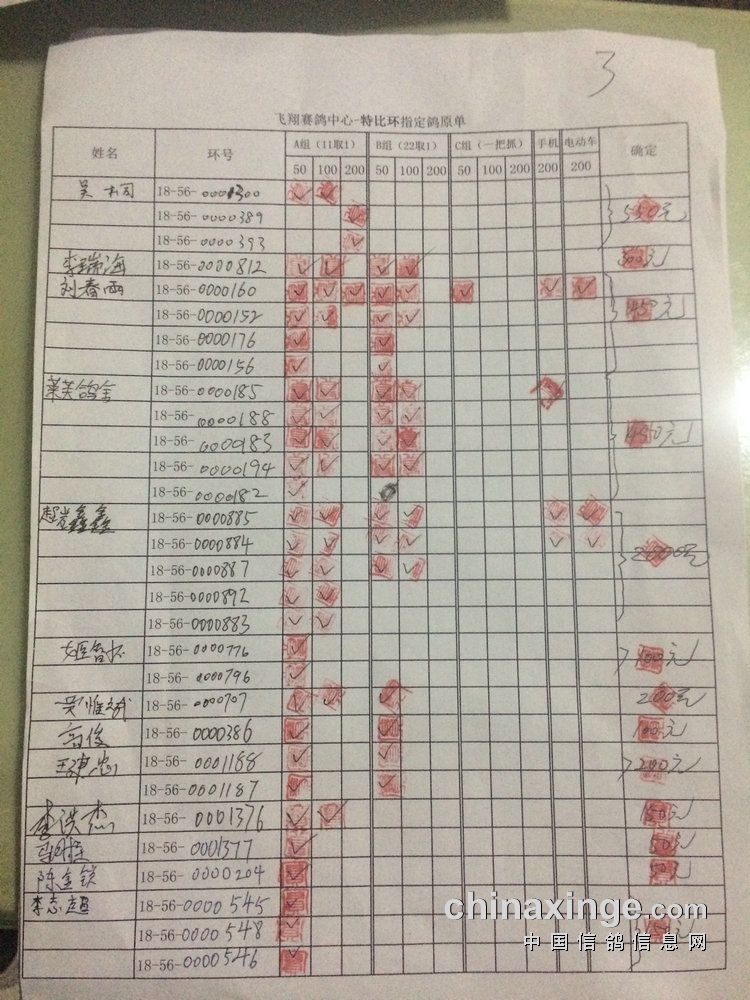 3
飞翔赛鸽中心-特比环指定鸽原单
姓名 环号 A组（11取1） B组（22取1） C组（一把抓） 手机 电动车 确定
50 100 200 50 100 200 50 100 200 200 200
吴 18-56-0001300 ✓ ✓
18-56-0000389 ✓ 550元
18-56-0000393 ✓
李瑞海 18-56-0000812 ✓ ✓ ✓ ✓ 300元
刘春雨 18-56-0000160 ✓ ✓ ✓ ✓ ✓ ✓ ✓ ✓
18-56-0000152 ✓ ✓ ✓ ✓
18-56-0000176 ✓ ✓
18-56-0000156 ✓ ✓
莱芙鸽舍 18-56-0000185 ✓ ✓ ✓ ✓ ✓
18-56-0000188 ✓ ✓ ✓ ✓
18-56-0000183 ✓ ✓ ✓ ✓
18-56-0000194 ✓ ✓ ✓ ✓
18-56-0000182 ✓
鑫鑫 18-56-0000885 ✓ ✓ ✓ ✓ ✓ ✓
18-56-0000884 ✓ ✓ ✓ ✓ ✓ ✓
18-56-0000887 ✓ ✓ ✓ ✓ 2000元
18-56-0000892 ✓ ✓
18-56-0000883 ✓ ✓
18-56-0000776 ✓ 100元
18-56-0000796 ✓
吴惟斌 18-56-0000707 ✓ ✓ ✓ 200元
高俊 18-56-0000386 ✓ ✓ 100元
王建忠 18-56-0001188 ✓ ✓ 200元
18-56-0001187 ✓ ✓
李洪杰 18-56-0001376 ✓ ✓ 150元
18-56-0001377 ✓ 50元
陈金锁 18-56-0000204 ✓ 50元
李志超 18-56-0000545 ✓
18-56-0000548 ✓ 150元
18-56-0000546 ✓
chinaxinge.com
中国信鸽信息网